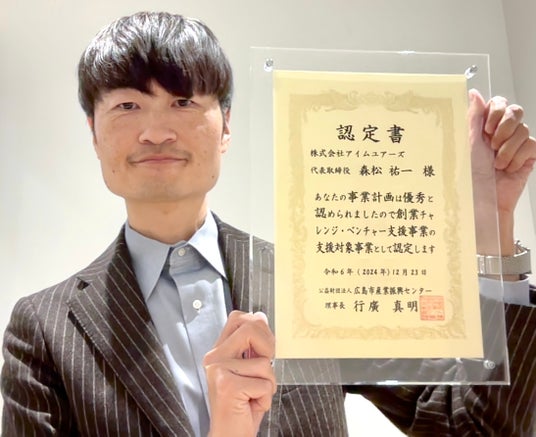 認定書
株式会社アイムユアーズ
代表取締役 森松 祐一 様
あなたの事業計画は優秀と
認められましたので創業チャ
レンジ・ベンチャー支援事業の
支援対象事業として認定します
令和6年(2024年)12月23日
公益財団法人 広島市産業振興センター
理事長 行廣 真明